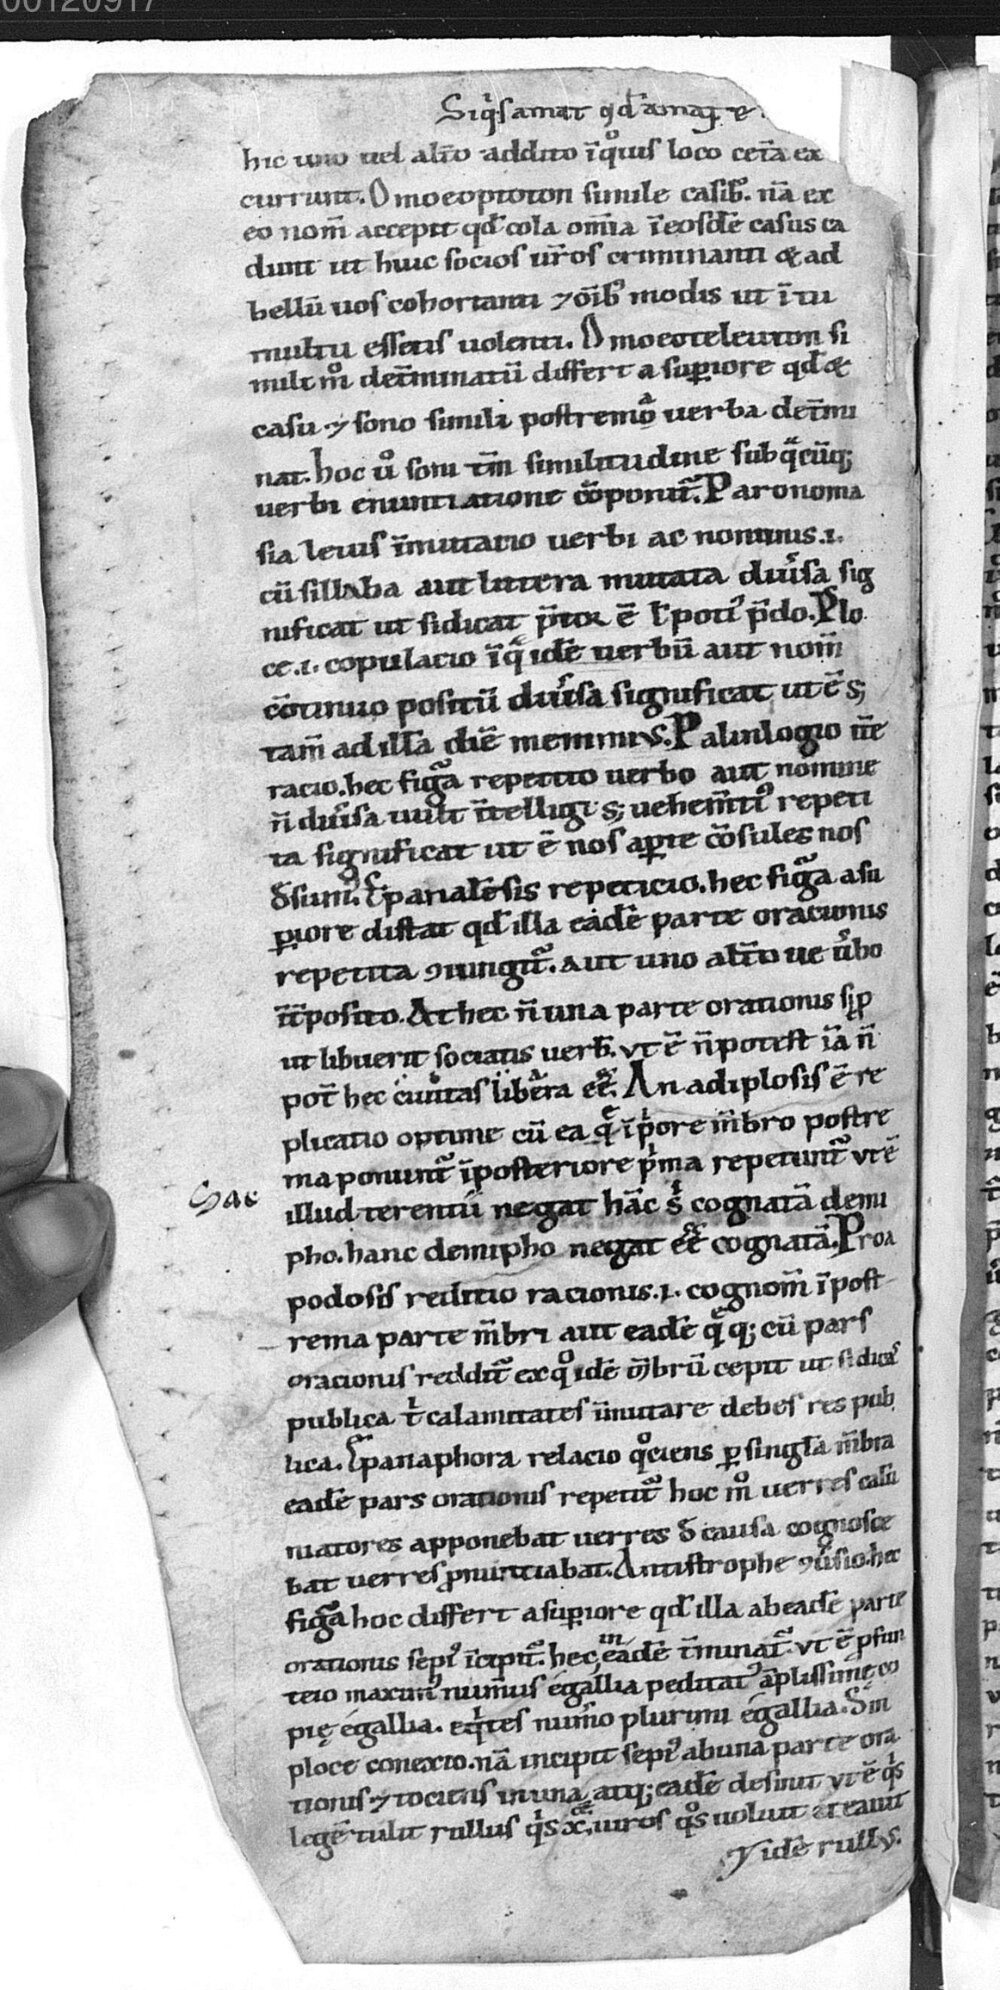 00120917
Siq̇samat qđ amaꝗ &
hic uno uel alt̄o addito ī q̊uis loco cet̄a ex
currunt. Omoeoptoton simile casib;. nā ex
eo nom̄ accepit qđ cola om̄ia ī eosdē casus ca
dunt ut huic socios ur̄os criminanti & ad
bellū uos cohortanti ⁊ oīb; modis ut ī tu
multu essetis uolenti. Omoeoteleuton si
mili m̊ det̄minatū differt a supiore qđ &
casu ⁊ sono simili postremo uerba det̄mi
nat. hoc ů soni tm̄ similitudine sub q̄cūq;
uerbi enuntiatione cōponit̄. Paronoma
sia leuis īmutatio uerbi ac nominis .i.
cū sillaba aut littera mutata diu̓sa sig
nificat ut si dicat p̄tor ē ł poti᾽ p̄do. Plo
ce .i. copulacio ī q̄ idē uerbū aut nom̄
cōtinuo positū diu̓sa significat ut ē s;
tam̄ ad illā diē memmi᾽. Palinlogio ite
racio. hec figaᷓ repetito uerbo aut nomine
n̄ diu̓sa uult ītelligi s; uehem̄ti᾽ repeti
ta significat ut ē nos aꝑte cōsules nos
đsum᾽. Epanalēsis repeticio. hec figaᷓ a su
ꝑiore distat qđ illa eadē parte orationis
repetita ꝯiungit̄. aut uno alt̄o ue u̓bo
īt̄posito. At hec n̄ una parte orationis sꝑ
ut libuerit sociatis uerb̄. ut ē n̄ potest iā n̄
pot̄ hec ciuitas libera eē. Anadiplosis ē re
plicatio optime cū ea q̄ ī p̓ore m̄bro postre
ma ponunt̄ ī posteriore p̓ma repetunt̄ ut ē
Sae
illud terentii negat hāc ēē cognatā demi
pho. hanc demipho negat ēē cognatā. Proa
podosis reditio racionis .i. cognom̄ ī post
rema parte m̄bri aut eadē q̄q; cū pars
oracionis reddit̄ ex q̊ idē m̄brū cepit ut si dicas
publica ł calamitates īmitare debes res pub
lica. Epanaphora relacio q̊ciens ꝑ singla m̄bra
eadē pars orationis repetit̄ hoc m̊ uerres calū
niatores apponebat uerres đ causa cognosce
bat uerres pnuntiabat. Antistrophe ꝯu̓sio. hec
figaᷓ hoc differt a supiore qđ illa ab eadē parte
orationis sepi᾽ īcipit̄. hec in eadē t̄minat̄. ut ē p fun
teio maximi᾽ nummus e gallia peditat᾽ āplissimę co
pię e gallia. eq̓tes num̄o plurimi e gallia. Sim
ploce conexio. nā incipit sepi᾽ ab una parte ora
tionis ⁊ tociens in una atq; eadē desinit ut ē q̓s
legē tulit rullus q̓s xͤ uiros q̊s uoluit creauit
⁊ idē rull᾽.